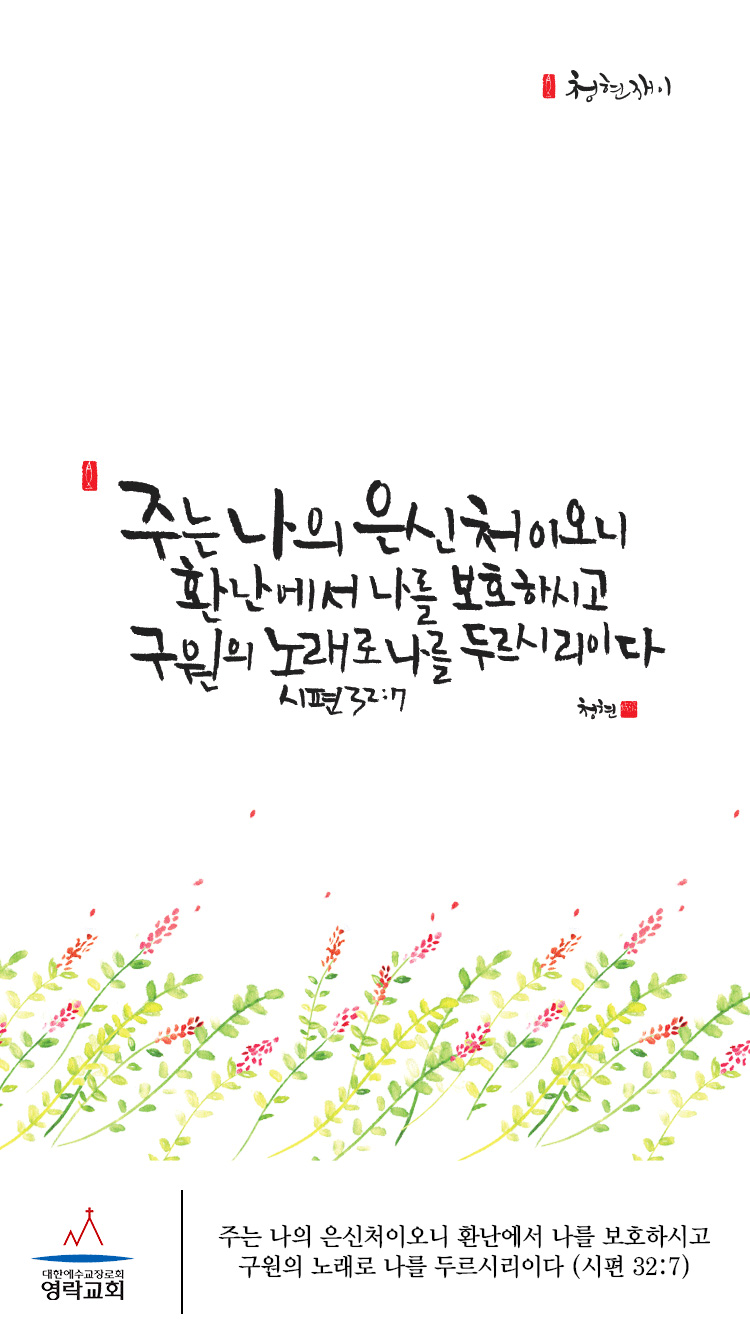 청현재이
주는 나의 은신처이오니
환난에서 나를 보호하시고
구원의 노래로 나를 두르시리이다
시편 32:7
청현
대한예수교장로회
영락교회
주는 나의 은신처이오니 환난에서 나를 보호하시고
구원의 노래로 나를 두르시리이다 (시편 32:7)